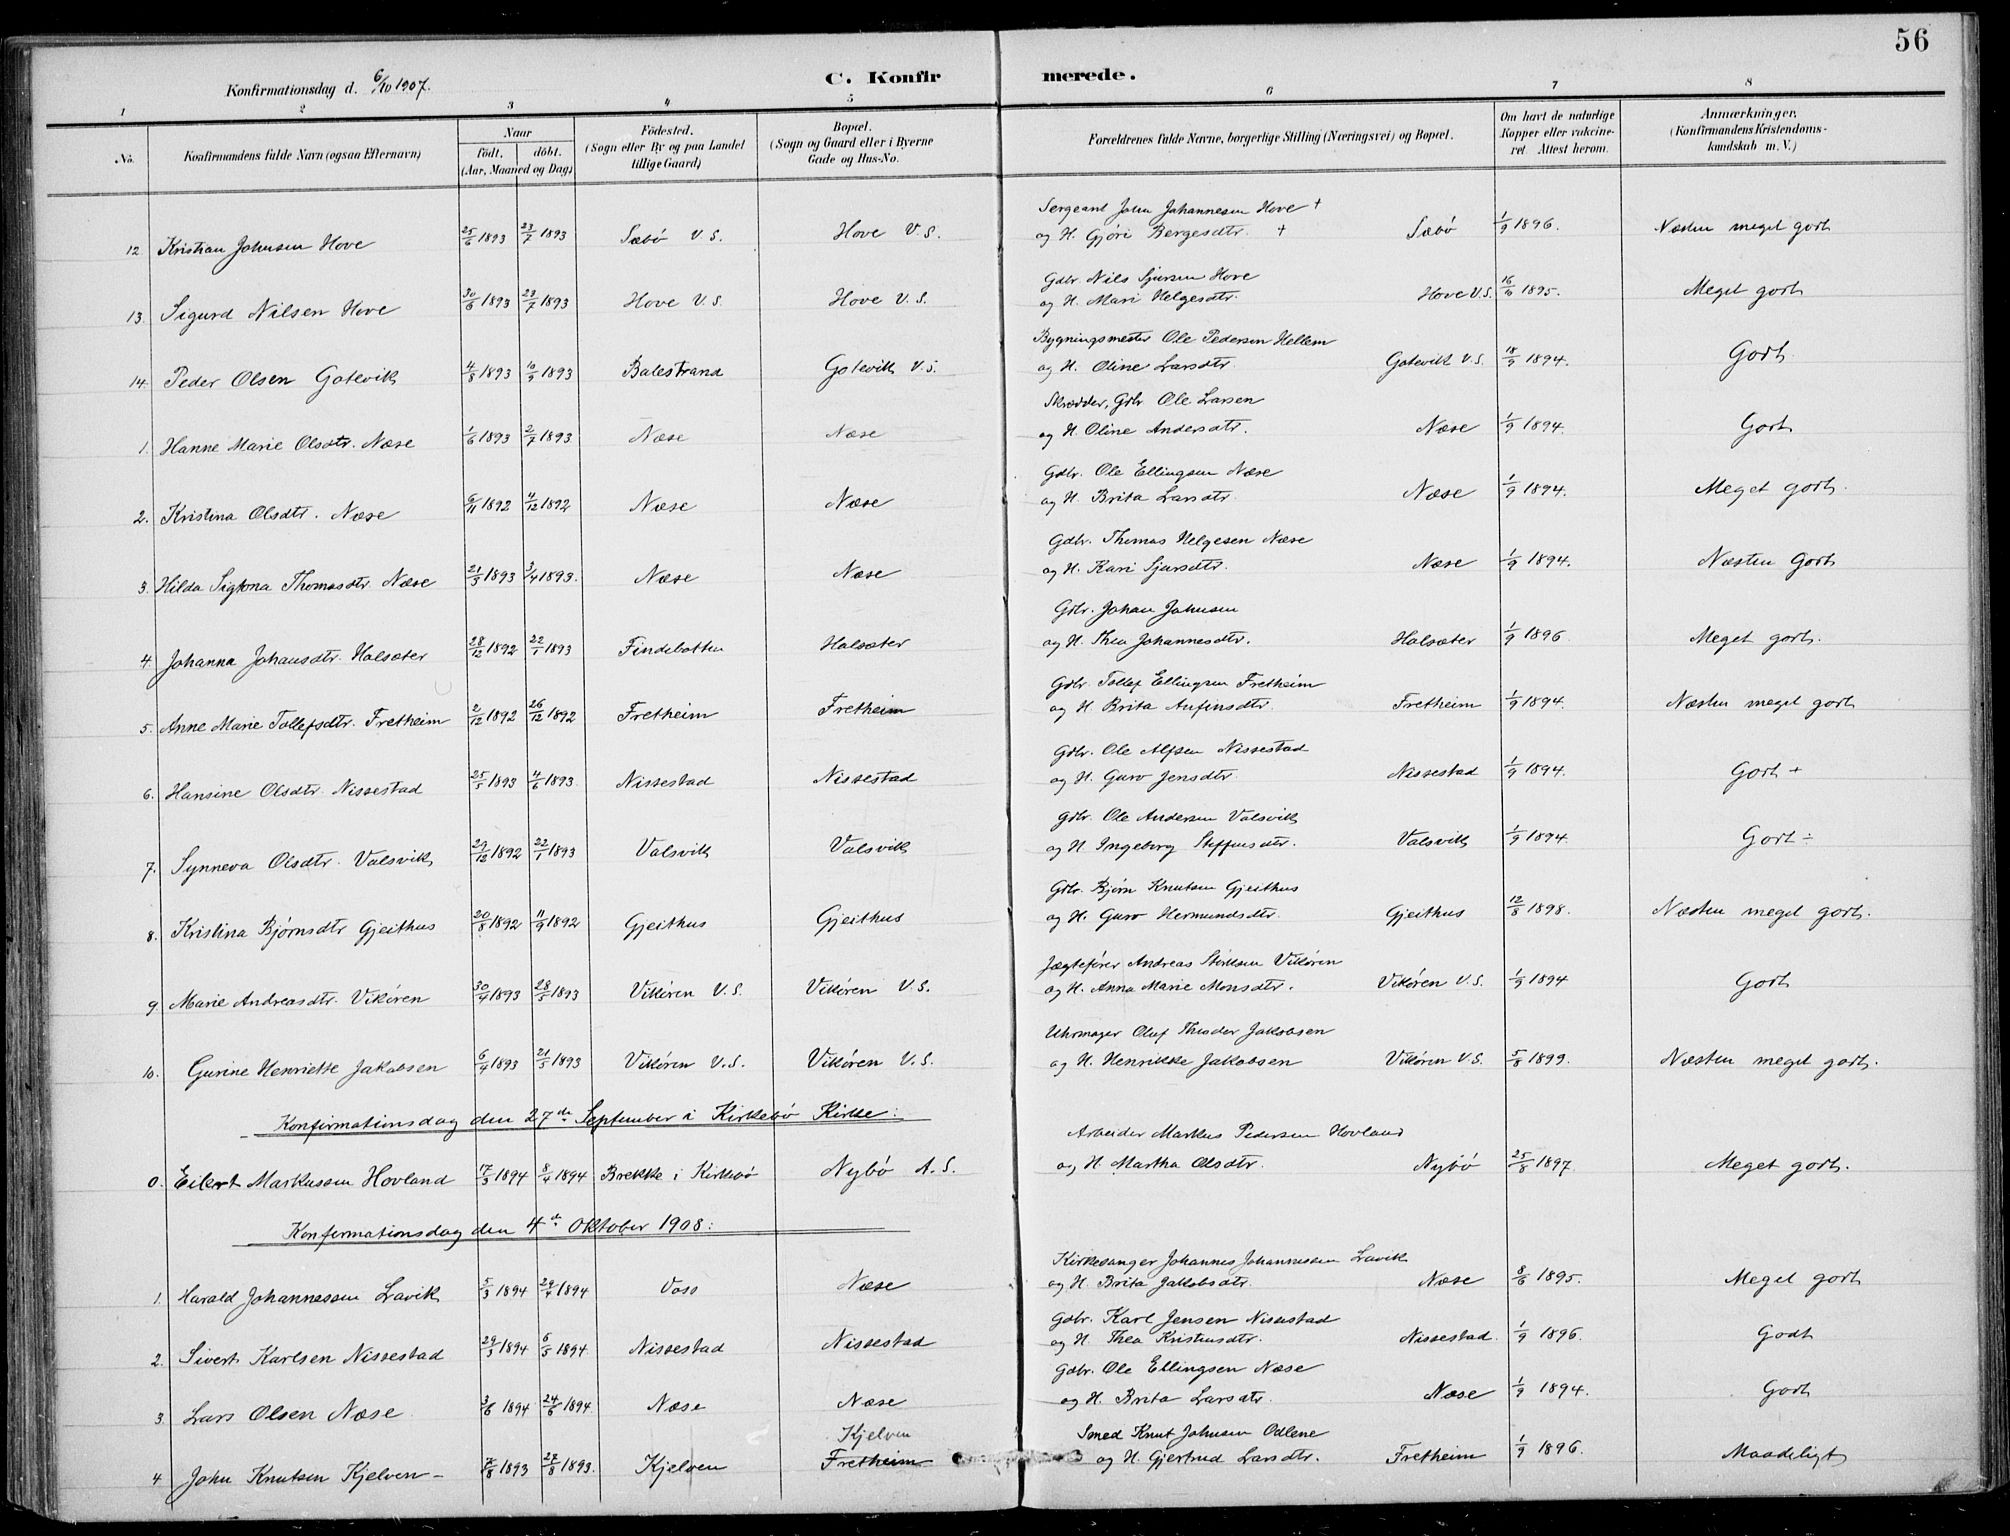 56
Konfirmationsdag d. 6/10 1907.
C. Konfirmerede.
1 2 3 4 5 6 7 8
No. Konfirmandens fulde Navn (ogsaa Efternavn) Naar födt. döbt. (Aar, Maaned og Dag) Födested. (Sogn eller By og paa Landet tillige Gaard) Bopæl. (Sogn og Gaard eller i Byerne Gade og Hus-No. Forældrenes fulde Navne, borgerlige Stilling (Næringsvei) og Bopæl. Om havt de naturlige Kopper eller vakcineret. Attest herom. Anmærkninger. (Konfirmandens Kristendomskundskab m. V.)
Sergeant John Johannesen Hove +
12 Kristian Johnsen Hove 25/6 1893 23/7 1893 Sæbö V.S. Hove V.S. og H. Gjöri Bergesdtr. + Sæbö 1/9 1896. Næsten meget godt
Gdbr Nils Sjursen Hove
13. Sigurd Nilsen Hove 30/6 1893 23/7 1893 Hove V.S. Hove V.S. og H. Mari Helgesdtr. Hove V.S. 16/6 1895. Meget godt
Bygningsmester Ole Pedersen Hellem
14. Peder Olsen Gotevik 4/8 1893 10/9 1893 Balestrand Gotevik V.S. og H. Oline Larsdtr. Gotevik V.S. 18/9 1894. Godt
Skrædder, Gdbr Ole Larsen
1. Hanne Marie Olsdtr. Næse 1/6 1893 2/7 1893 Næse Næse og H. Oline Andersdtr. Næse 1/9 1894. Godt
Gdbr. Ole Ellingsen Næse
2. Kristina Olsdtr. Næse 6/11 1892 4/12 1892 Næse Næse og H. Brita Larsdtr. Næse 1/9 1894. Meget godt.
Gdbr. Thomas Helgesen Næse
3. Hilda Sigtona Thomasdtr. Næse 21/3 1893 3/4 1893. Næse Næse og H. Kari Sjursdtr. Næse 1/9 1894. Næsten Godt
Gdbr. Johan Johnsen
4. Johanna Johansdtr. Halsæter 28/12 1892 22/1 1893 Findebotten Halsæter og H. Thea Johannesdtr. Halsæter 1/9 1896. Meget godt.
Gdbr. Tollef Ellingsen Fretheim
5. Anne Marie Tollefsdtr. Fretheim 2/12 1892 26/12 1892 Fretheim Fretheim og H Brita Anfinsdtr. Fretheim 1/9 1894. Næsten meget godt
Gdbr. Ole Alfsen Nissestad
6. Hansine Olsdtr. Nissestad 25/5 1893 4/6 1893. Nissestad Nissestad og H. Guro Jensdtr. Nissestad 1/9 1894. Godt +
Gdbr. Ole Andersen Valsvik
7. Synneva Olsdtr. Valsvik 29/12 1892 22/1 1893 Valsvik Valsvik og H. Ingeborg Steffensdtr. Valsvik 1/9 1894. Godt ÷
Gdbr. Bjørn Knutsen Gjeithus
8. Kristina Bjørnsdtr Gjeithus 20/8 1892 11/9 1892 Gjeithus Gjeithus og H. Guro Hermundsdtr. Gjeithus 12/8 1898. Næsten meget godt.
Jægtefører Andreas Vikören
9. Marie Andreasdtr. Vikören 30/4 1893 28/5 1893 Vikören V.S. Vikören V.S. og H. Anna Marie Monsdtr. Vikören V.S. 1/9 1894 Godt
Uhrmager Oluf Theodor Jakobsen
10. Gurine Henriette Jakobsen 6/4 1893 21/5 1893 Vikören V.S. Vikören V.S. og H. Henrikke Jakobsen Vikören V.S. 5/8 1899. Næsten meget godt.
Konfirmationsdag den 27de September i Kirkebö Kirke:
Arbeider Markus Pedersen Hovland
0. Eilert Markussen Hovland 17/3 1894 8/4 1894 Brekke i Kirkebö Nybö A.S. og H. Martha Olsdtr. Nybö 25/8 1897. Meget godt.
Konfirmationsdag den 4de Oktober 1908:
Kirkesanger Johannes Johannessen Lavik
1. Harald Johannessen Lavik 5/3 1894 29/4 1894 Voss Næse og H. Brita Jakobsdtr. Næse 8/6 1895. Meget godt
Gdbr. Karl Jensen Nissestad
2. Sivert Karlsen Nissestad 29/3 1894 6/5 1894. Nissestad Nissestad og H. Thea Kristensdtr. Nissestad. 1/9 1896. Godt
Gdbr. Ole Ellingsen Næse
3. Lars Olsen Næse 3/6 1894 24/6 1894. Næse Næse og H. Brita Larsdtr. Næse 1/9 1894. Godt
Kjelven Smed Knut Johnsen Odlene
4 John Knutsen Kjelven 7/8 1893 27/8 1893. Kjelven Fretheim og H. Gjertrud Larsdtr. Fretheim 1/9 1896. Maadeligt